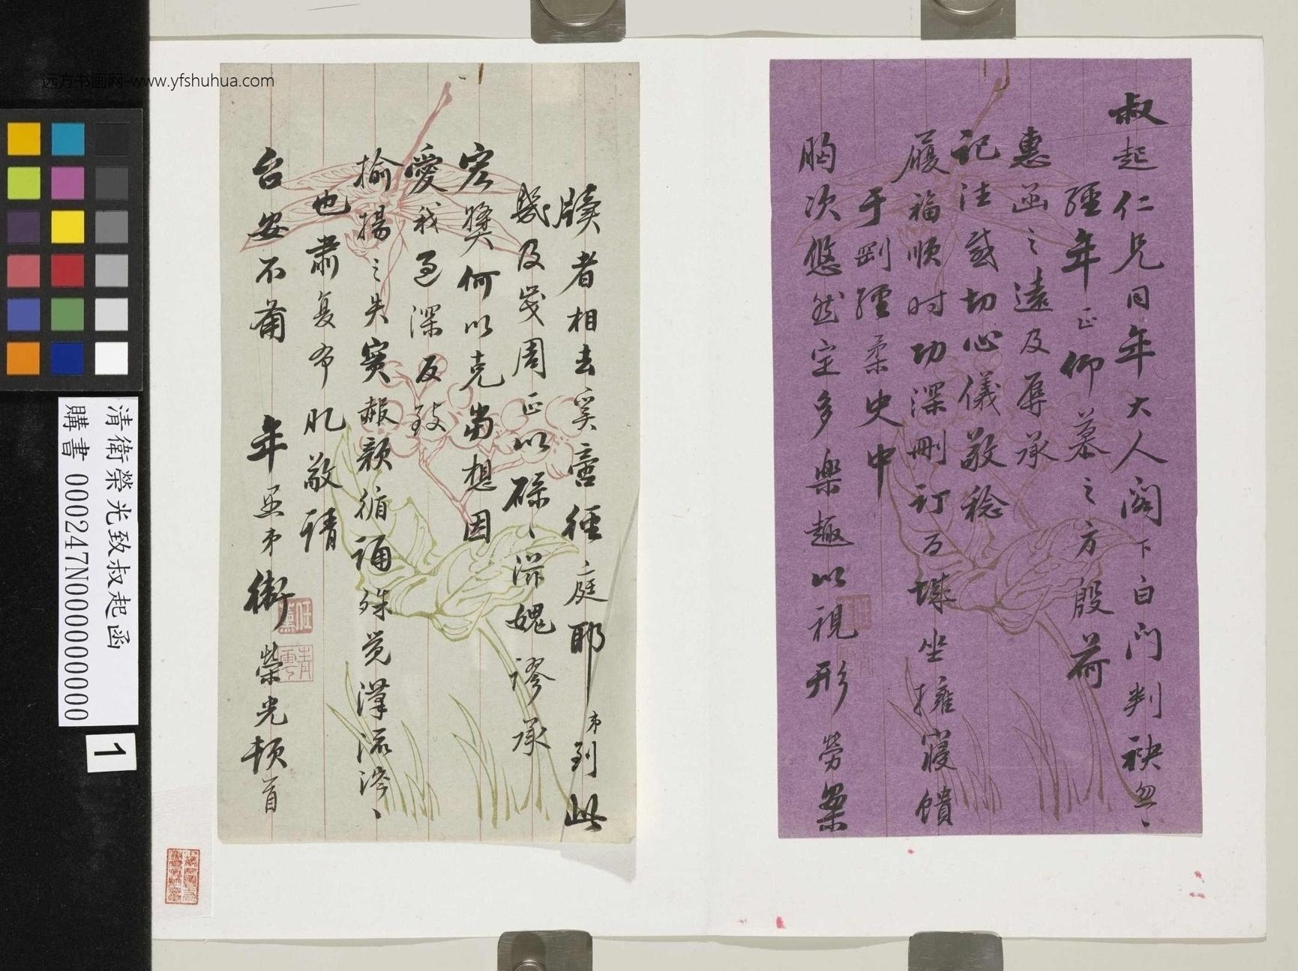 远方书画网-www.yfshuhua.com
叔起仁兄同年大人阁下白门判袂忽、
經年正仰慕之方殷荷
惠函之遠及辱承
記注感切心儀敬稔
履福順時功深刪訂百城坐擁寢饋
于剛經柔史中
胸次悠然定多樂趣以視形勞案
牘者相去奚啻徑庭耶弟到此
幾及歲周正以碌、滋愧謬承
宏獎何以克當想因
愛我過深反致
揄揚之失實赧顏循誦殊覺漢流滂、
也肅复布肊敬請
台安不莆
年愚弟衛榮光頓首
清衛榮光致叔起函
購書 000247N000000000
1